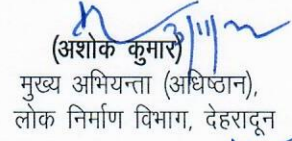 (अशोक कुमार)
मुख्य अभियन्ता (अधिष्ठान),
लोक निर्माण विभाग, देहरादून